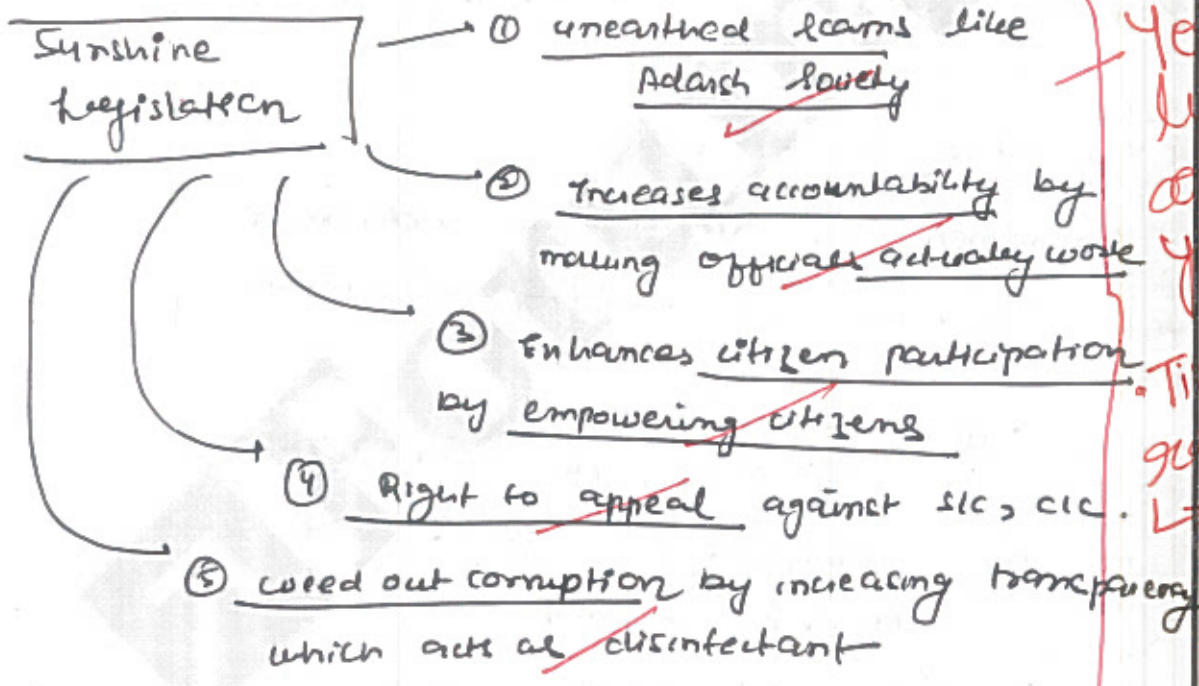 Sunshine
Legislation
① unearthed scams like
Adarsh Society
② Increases accountability by
making officials actually work
③ Enhances citizen participation
by empowering citizens
④ Right to appeal against SIC, CIC.
⑤ weed out corruption by increasing transparency
which acts as disinfectant